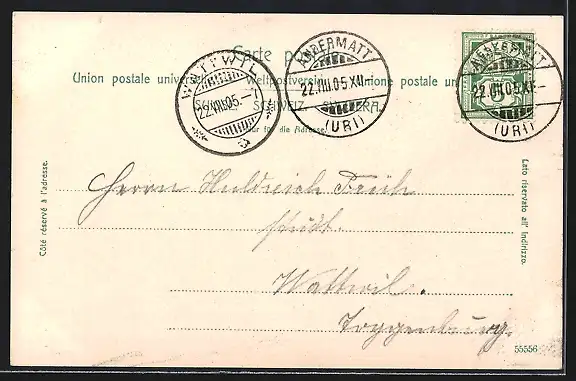 Carte postale
Union postale universelle. Weltpostverein. Unione postale
SUISSE. SCHWEIZ. SVIZZERA.
Nur für die Adresse.
WATTWIL
22.VIII.05.-7
ANDERMATT
22.VIII.05.XII-
(URI)
ANDERMATT
22.VIII.05.XII-
(URI)
5
Côté réservé à l'adresse.
Lato riservato all' Indirizzo.
Herrn Huldreich Früh
Wattwil.
Toggenburg.
55556